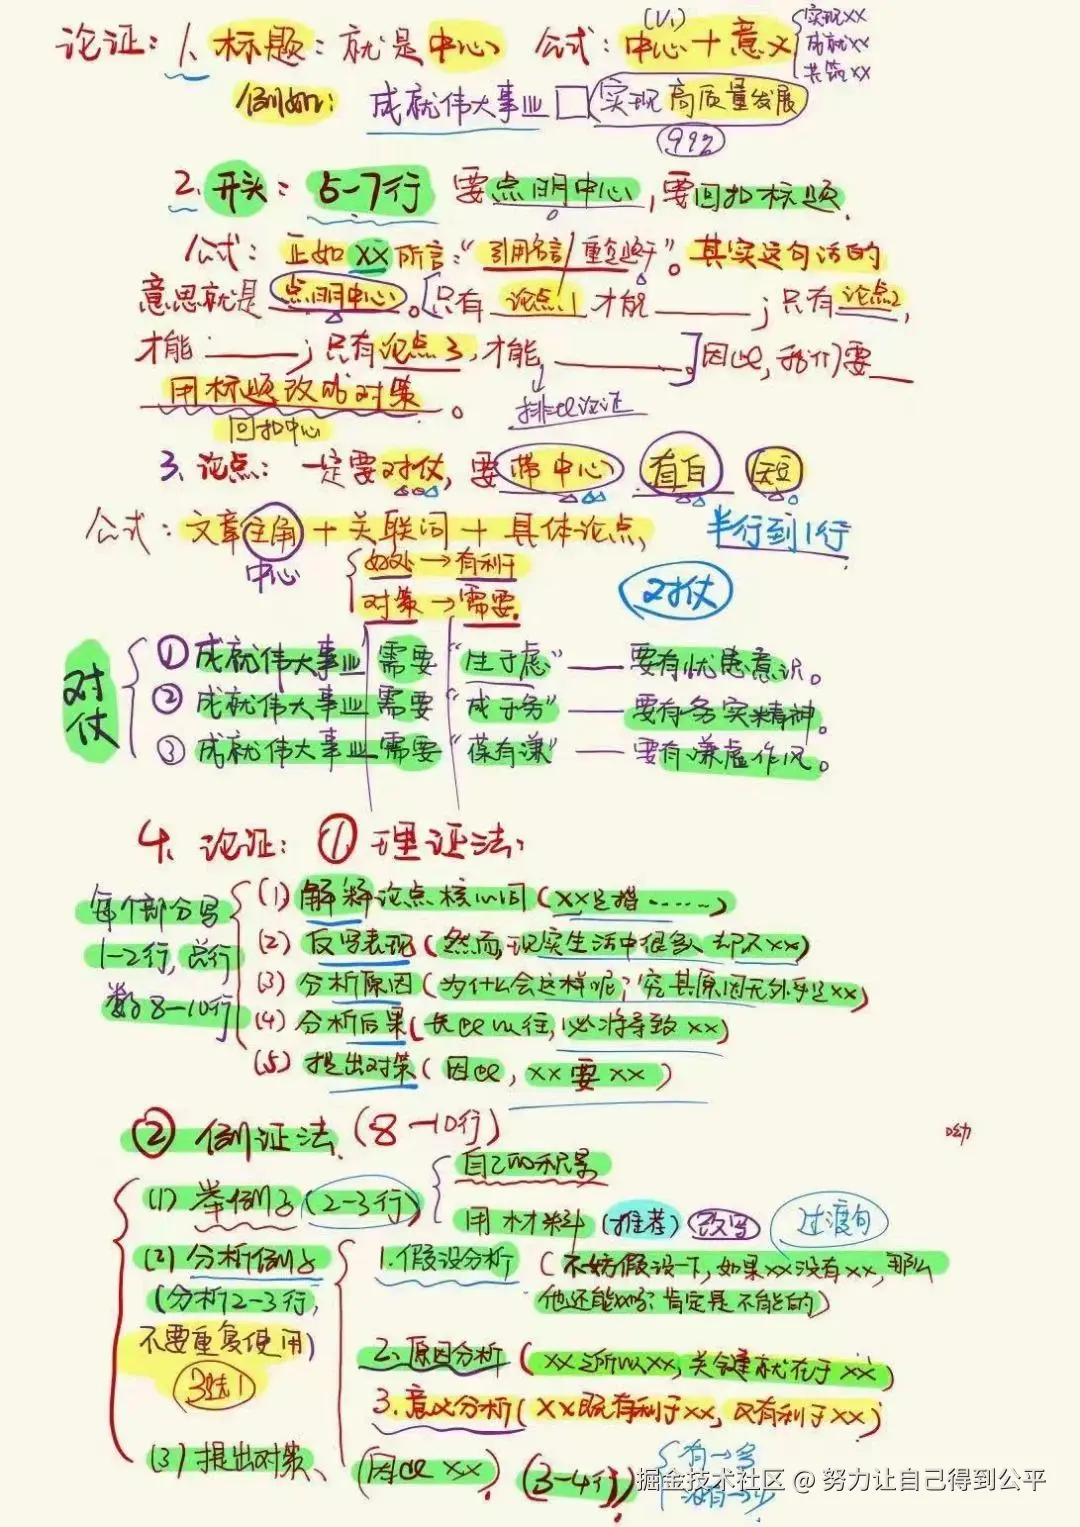 论证：1、标题：就是中心 公式：中心＋意义
(V.)
实现XX
成就XX
共筑XX
例如：成就伟大事业□实现高质量发展
2、开头：5-7行 要点明中心，要回扣标题.
公式：正如XX所言："引用名言/重复题干"。其实这句话的
意思就是点明中心。[只有论点1才能______；只有论点2，
才能______；只有论点3，才能______。]因此，我们要__
用标题改成对策。
排比论证
回扣中心
3、论点：一定要对仗，要带中心 有自 短
公式：文章主角＋关联词＋具体论点， 半行到1行
中心
好处→有利于
对策→需要.
对仗
对仗
①成就伟大事业 需要 "生于虑"——要有忧患意识。
②成就伟大事业 需要 "成于务"——要有务实精神。
③成就伟大事业 需要 "葆有谦"——要有谦虚作风。
4、论证：①理证法：
每个部分写
1-2行，总行
数 8-10行
(1) 解释论点核心词(XX是指……)
(2) 反写表现(然而，现实生活中很多人却不XX)
(3) 分析原因(为什么会这样呢？究其原因无外乎是XX)
(4) 分析后果(长此以往，必将导致XX)
(5) 提出对策(因此，XX要XX)
②例证法(8-10行)
(1) 举例子(2-3行)
自己的积累
用材料(推荐)(改写) 过渡句
(2) 分析例子
(分析2-3行，
不要重复使用)
3选1
1.假设分析(不妨假设一下，如果XX没有XX，那么
他还能XX吗？肯定是不能的)
2.原因分析(XX之所以XX，关键就在于XX)
3.意义分析(XX既有利于XX，又有利于XX)
(3) 提出对策、(因此XX).(3-4行)
有→多
没有→少
掘金技术社区 @ 努力让自己得到公平